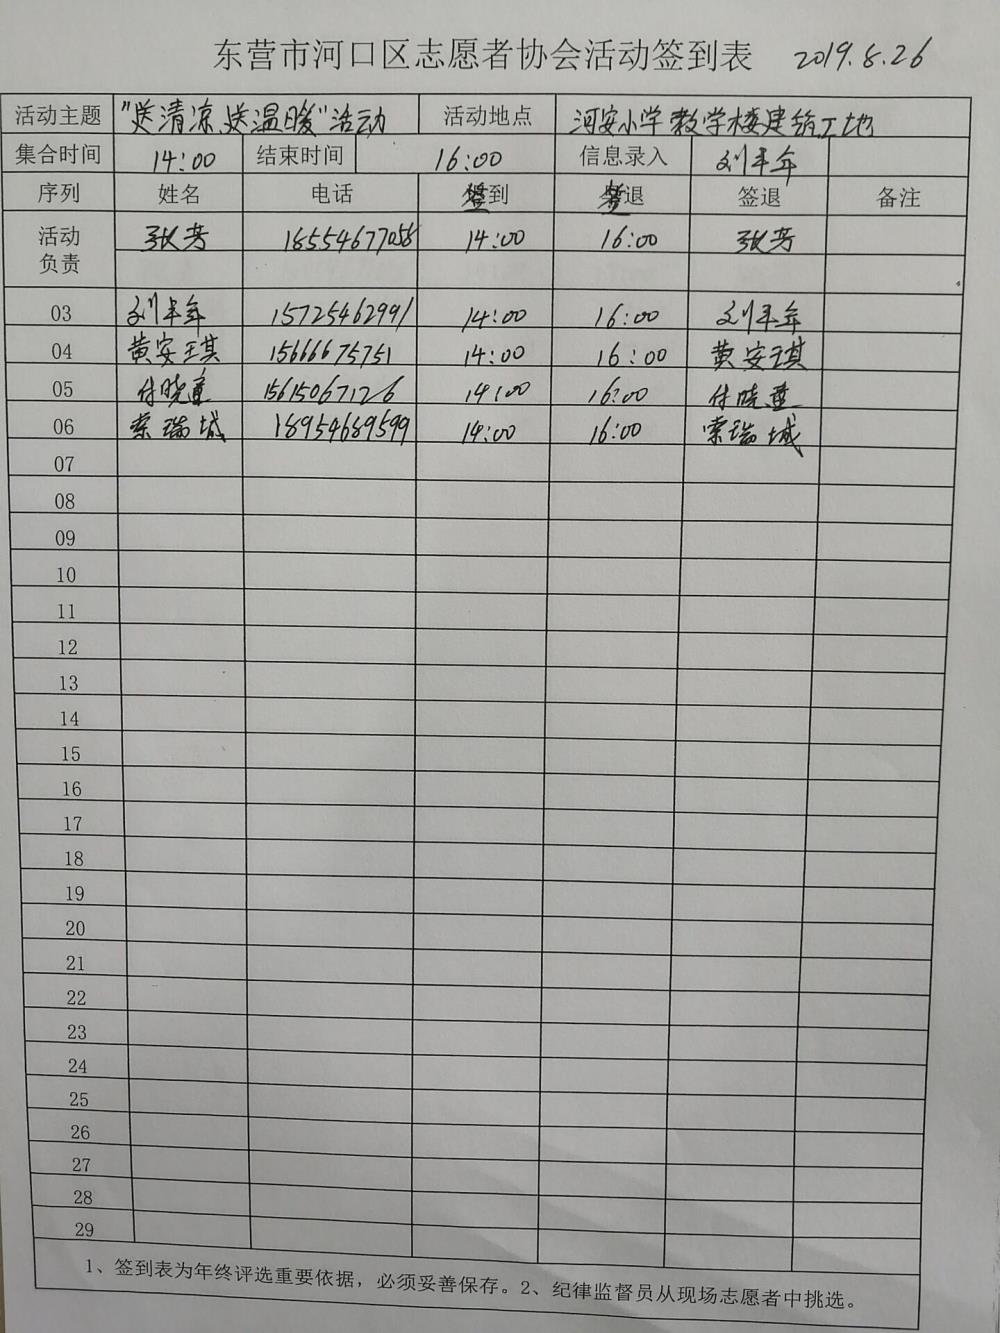 东营市河口区志愿者协会活动签到表 2019.8.26
活动主题 "送清凉、送温暖"活动 活动地点 河安小学教学楼建筑工地
集合时间 14:00 结束时间 16:00 信息录入 刘丰年
序列 姓名 电话 签到 签退 签退 备注
活动负责 张芳 18554677058 14:00 16:00 张芳
03 刘丰年 15725462991 14:00 16:00 刘丰年
04 黄安琪 15666675751 14:00 16:00 黄安琪
05 付晓童 15615067126 14:00 16:00 付晓童
06 索瑞城 18954689599 14:00 16:00 索瑞城
07
08
09
10
11
12
13
14
15
16
17
18
19
20
21
22
23
24
25
26
27
28
29
1、签到表为年终评选重要依据，必须妥善保存。2、纪律监督员从现场志愿者中挑选。